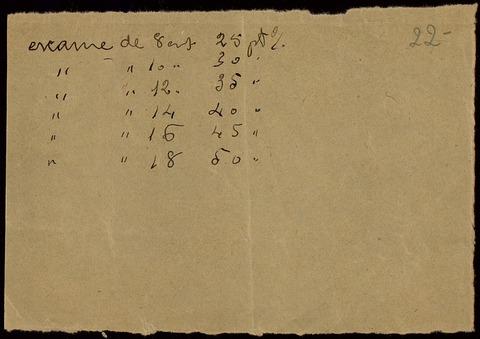 excame de 8 ent 25 pt %. 22-
" " 10 " 30 "
" " 12 " 35 "
" " 14 40 "
" " 16 45 "
" " 18 50 "